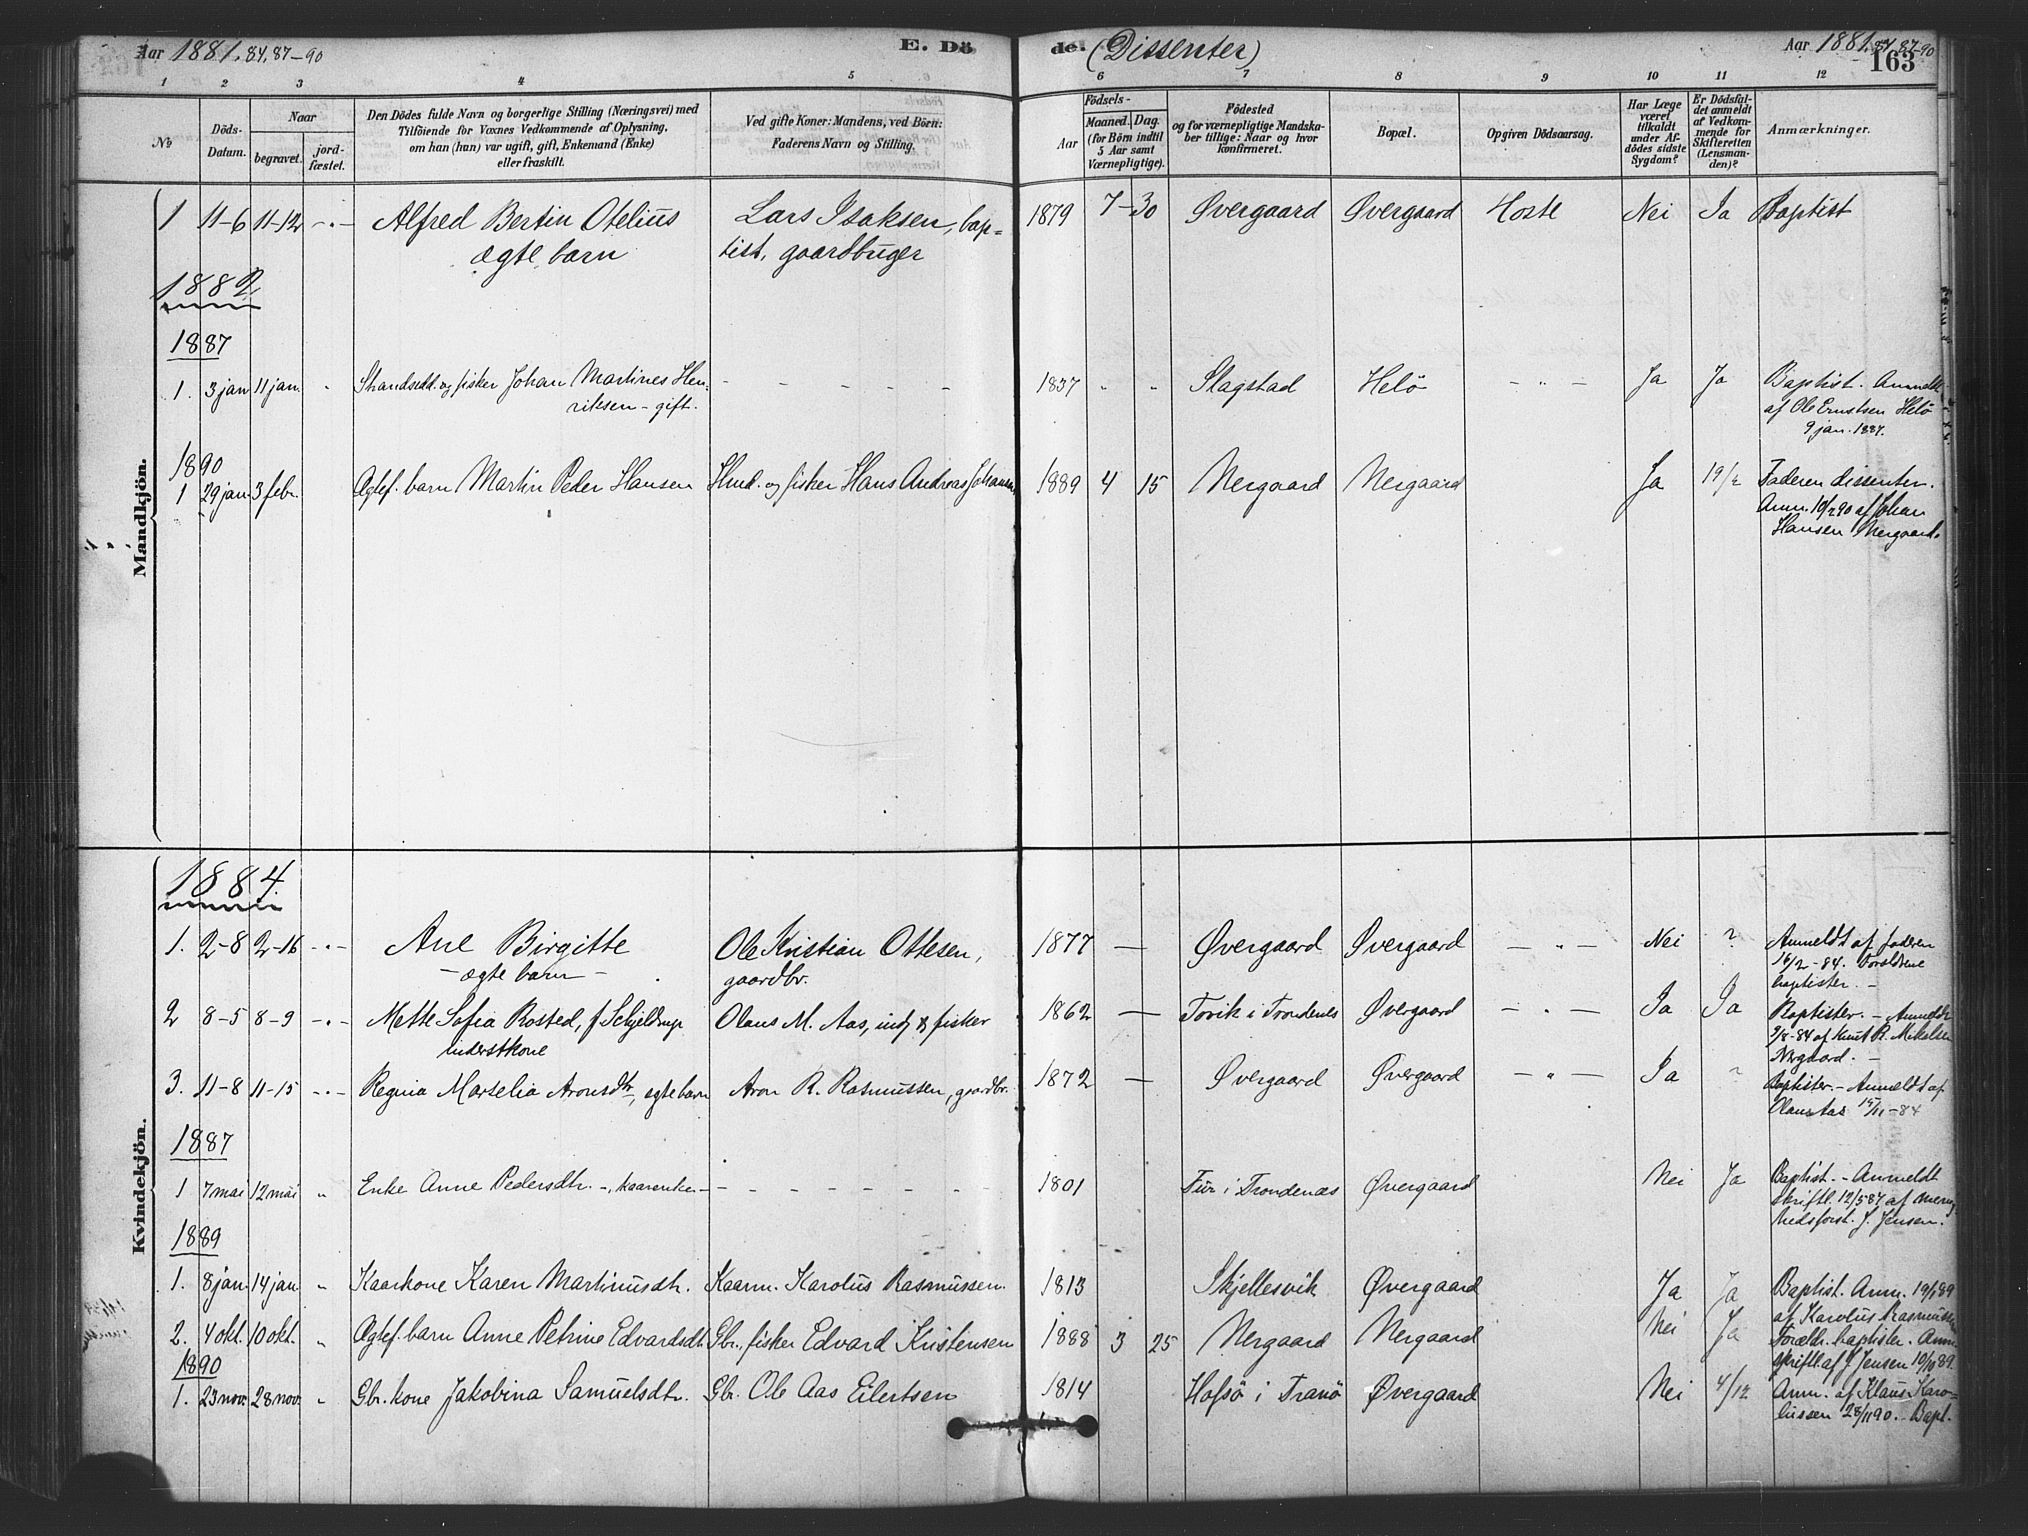 Aar 1881. 84. 87–90 E. Dö de. (Dissenter) Aar 1881. 84. 87–90
163
1 2 3 4 5 6 7 8 9 10 11 12
№
Döds-
Datum.
Naar
begravet.
jord-
fæstet.
Den Dödes fulde Navn og borgerlige Stilling (Næringsvei) med
Tilföiende for Voxnes Vedkommende af Oplysning,
om han (hun) var ugift, gift, Enkemand (Enke)
eller fraskilt.
Ved gifte Koner: Mandens, ved Börn:
Faderens Navn og Stilling.
Födsels-
Aar
Maaned. Dag.
(for Börn indtil
5 Aar samt
Værnepligtige).
Födested
og for værnepligtige Mandska-
ber tillige: Naar og hvor
konfirmeret.
Bopæl.
Opgiven Dödsaarsag.
Har Læge
været
tilkaldt
under Af-
dödes sidste
Sygdom?
Er Dödsfal-
det anmeldt
af Vedkom-
mende for
Skifteretten
(Lensman-
den)?
Anmærkninger.
Mandkjön.
1 11–6 11–12 –"– Alfred Bertin Otelius Lars Isaksen, bap- 1879 7–30 Øvergaard Øvergaard Hoste Nei Ja Baptist
ægte barn tist, gaardbruger
1882
1887
1. 3 jan 11 jan. " Strandsidd. og fisker Johan Martines Hen- – – – – – 1837 " " Slagstad Helø – " – Ja Ja Baptist. Anmeldt
riksen – gift. af Ole Ernstsen Helø
9 jan. 1887.
1890
1 29 jan. 3 febr. Ægtef. barn Martin Peder Hansen Hmd. og fisker Hans Andreas Johansen 1889 4 15 Nergaard Nergaard Ja 19/2 Faderen dissenter.
Anm. 10/2 90 af Johan
Hansen Nergaard.
Kvindekjön.
1884.
1. 2–8 2–16 –"– Ane Birgitte Ole Kristian Ottesen, 1877 — Øvergaard Øvergaard – " – Nei ? Anmeldt af faderen
– ægte barn – gaardbr. 16/2–84. Forældrene
baptister. –
2 8–5 8–9 –"– Mette Sofia Rosted, f. Schjeldrup Olaus M. Aas, indj. & fisker 1862 — Torvik i Trondenes Øvergaard – " – Ja Ja Baptister. – Anmeldt
inderstkone 9/8–84 af Knut R. Mikalsen
Nergaard. –
3. 11–8 11–15 –"– Regina Marselia Aronsdtr, ægte barn Aron R. Rasmussen, gaardbr. 1872 — Øvergaard Øvergaard – " – Ja ? Baptister. – Anmeldt af
Olaus Aas 15/11–84
1887
1 7 mai 12 mai " Enke Anne Pedersdtr. –, kaarenke – – – – – – – 1801 i Trondenæs Øvergaard Nei Ja Baptist. – Anmeldt
skriftl. 12/5 87 af menig-
hedsforst. J. Jensen.
1889
1. 8 jan. 14 jan. " Kaarkone Karen Martinusdtr. Kaarm. Karolus Rasmussen. 1813 Skjellesvik Øvergaard Ja Ja Baptist. Anm. 19/1 89
af Karolus Rasmussen
2. 4 okt. 10 okt. " Ægtef. barn Anne Petrine Edvardsdtr. Gbr., fisker Edvard Kristensen 1888 3 25 Nergaard Nergaard Nei Ja Forældr. baptister. Anm.
skriftl. af J. Jensen 10/10 89.
1890
1. 23 nov. 28 nov. " Gbr. kone Jakobina Samuelsdtr. Gbr. Ole Aas Eilertsen 1814 Hofsö i Tranö Øvergaard Nei 4/12 Anm. af Klaus Karo-
lussen 28/11 90. – Bapt.